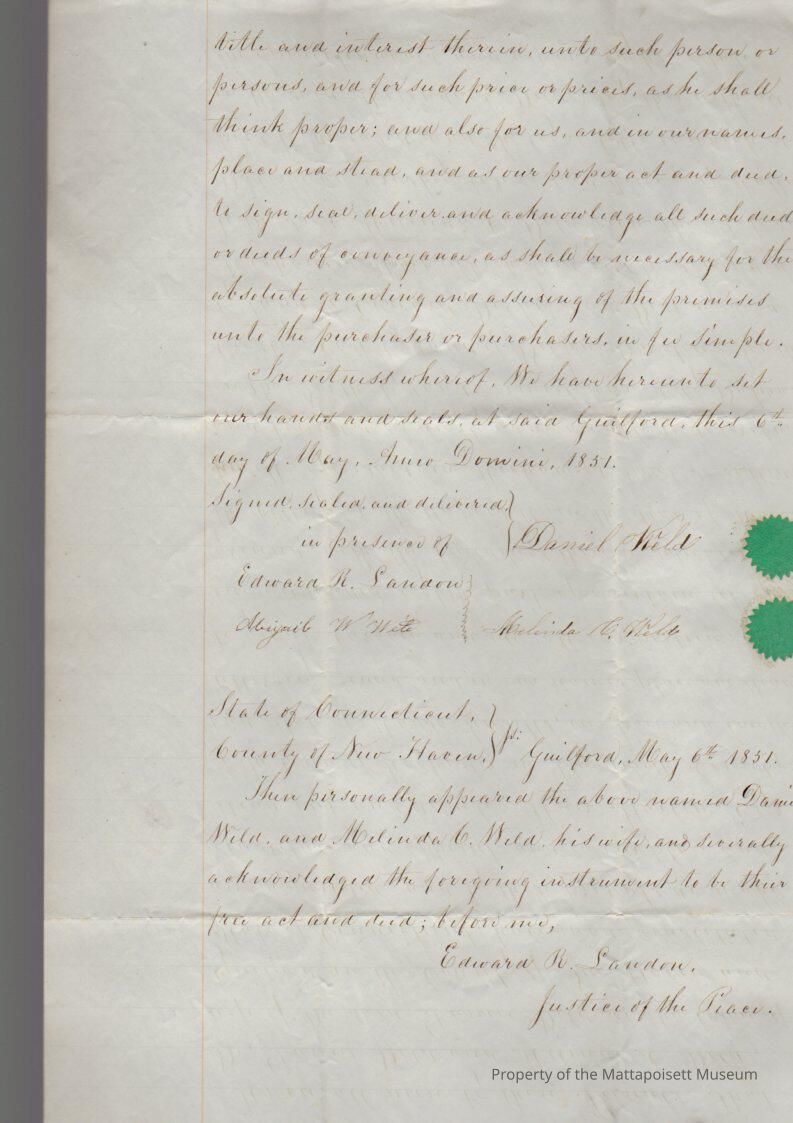 title and interest therein, unto such person or
persons, and for such price or prices, as he shall
think proper; and also for us, and in our names,
place and stead, and as our proper act and deed,
to sign, seal, deliver and acknowledge all such deed
or deeds of conveyance, as shall be necessary for the
absolute granting and assuring of the premises
unto the purchaser or purchasers, in fee simple.
In witness whereof, We have hereunto set
our hands and seals, at said Guilford, this 6th
day of May, Anno Domini, 1851.
Signed, sealed, and delivered,
in presence of Daniel Weld
Edward R. Landon
Abigail W Melinda C. Weld
State of Connecticut,
County of New Haven, ss: Guilford, May 6th 1851.
Then personally appeared the above named Danie
Weld, and Melinda C. Weld, his wife, and severally
acknowledged the foregoing instrument to be their
free act and deed; before me,
Edward R. Landon,
Justice of the Peace.
Property of the Mattapoisett Museum